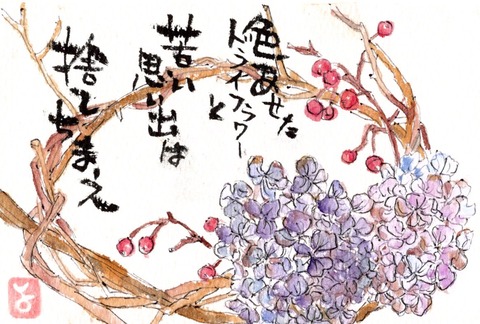 色あせた
ドライフラワーと
苦い
思い出は
捨て
ちまえ